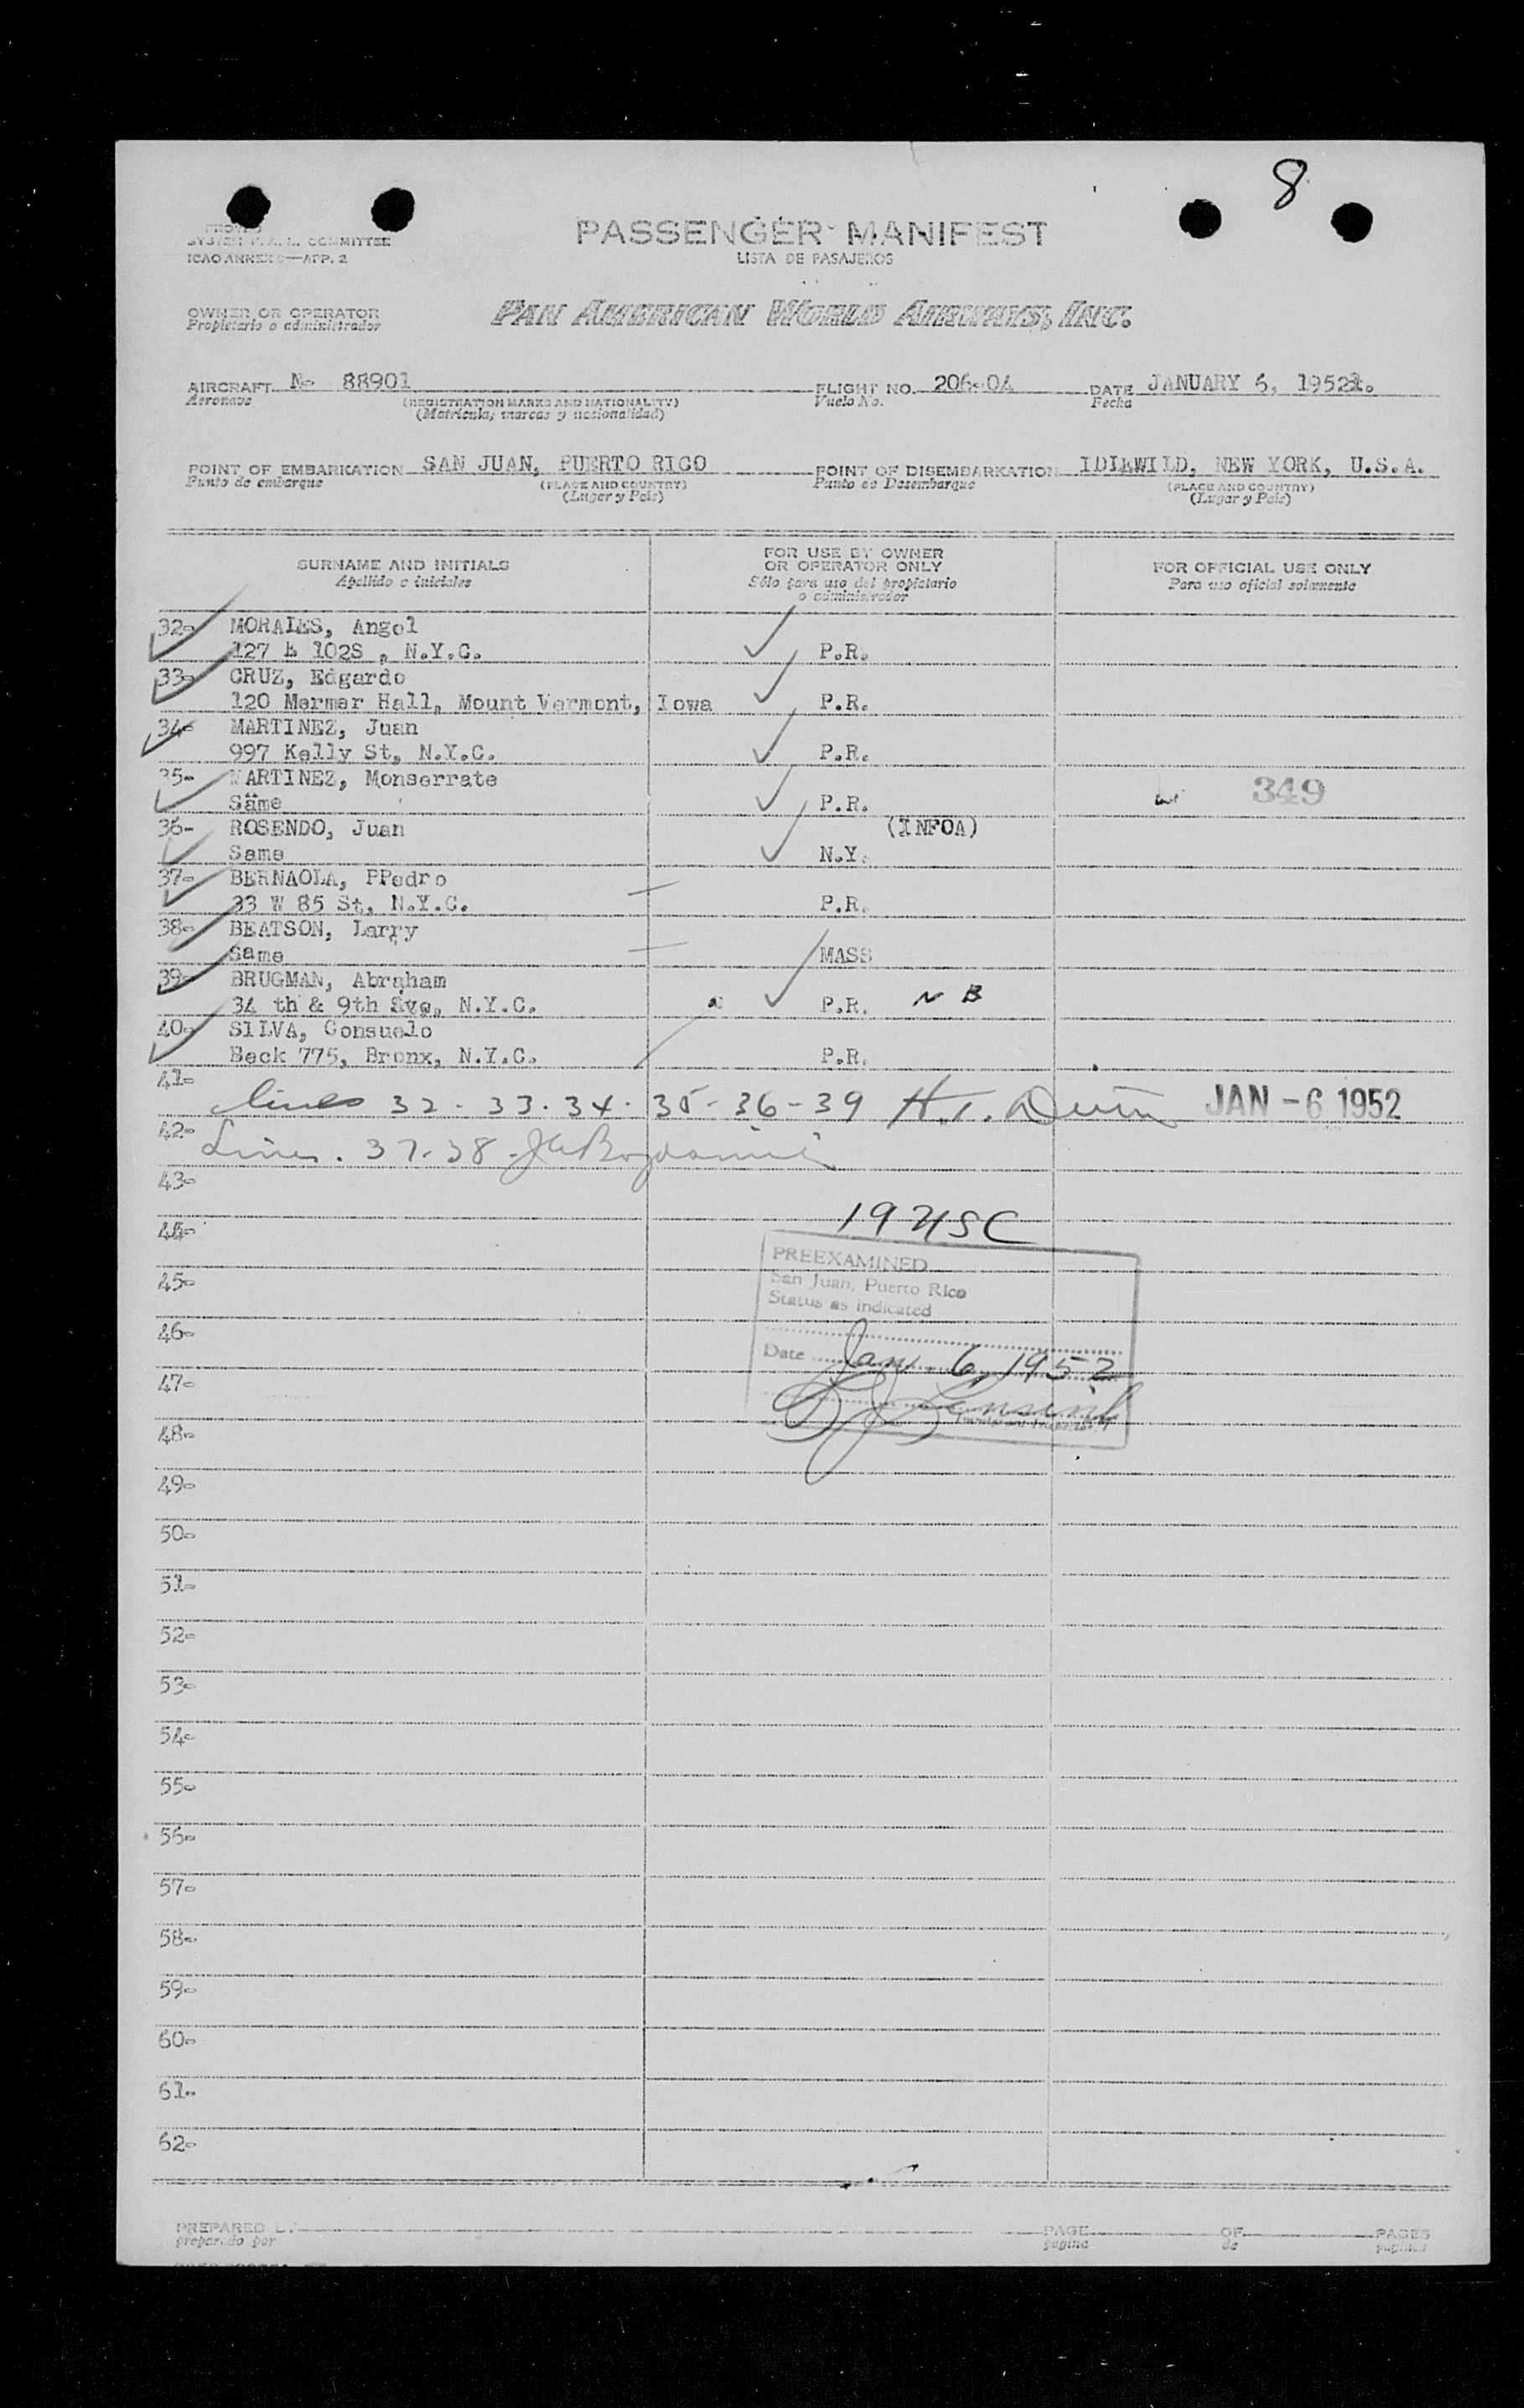 8
PASSENGER MANIFEST
LISTA DE PASAJEROS
COMMITTEE
ICAO ANNEX 9—APP. 2
OWNER OR OPERATOR
Propietario o administrador
PAN AMERICAN WORLD AIRWAYS, INC.
AIRCRAFT N- 88901 FLIGHT NO. 206-04 DATE JANUARY 5, 1952.
Aeronave (REGISTRATION MARKS AND NATIONALITY) Vuelo No. Fecha
(Matricula, marcas y nacionalidad)
POINT OF EMBARKATION SAN JUAN, PUERTO RICO POINT OF DISEMBARKATION IDLEWILD, NEW YORK, U.S.A.
Punto de embarque (PLACE AND COUNTRY) Punto de Desembarque (PLACE AND COUNTRY)
(Lugar y País) (Lugar y País)
SURNAME AND INITIALS
Apellido e iniciales
FOR USE BY OWNER
OR OPERATOR ONLY
Sólo para uso del propietario
o administrador
FOR OFFICIAL USE ONLY
Para uso oficial solamente
32- MORALES, Angel
127 E 102S , N.Y.C. P.R.
33- CRUZ, Edgardo
120 Mermer Hall, Mount Vermont, Iowa P.R.
34- MARTINEZ, Juan
997 Kelly St, N.Y.C. P.R.
35- MARTINEZ, Monserrate
Same P.R. 349
36- ROSENDO, Juan (INFOA)
Same N.Y.
37- BERNAOLA, PPedro
33 W 85 St, N.Y.C. P.R.
38- BEATSON, Larry
Same MASS
39- BRUGMAN, Abraham
34 th & 9th Ave, N.Y.C. P.R. N B
40- SILVA, Consuelo
Beck 775, Bronx, N.Y.C. P.R.
41-
lines 32 - 33 - 34 - 35 - 36 - 39 H.T. JAN - 6 1952
42-
Lines . 37-38 -
43-
19 USC
44-
PREEXAMINED
San Juan, Puerto Rico
45-
Status as indicated
46-
Date Jan. 6, 1952
47-
Immigrant Inspector
48-
49-
50-
51-
52-
53-
54-
55-
56-
57-
58-
59-
60-
61-
62-
PREPARED BY PAGE OF PAGES
preparado por pagina de paginas